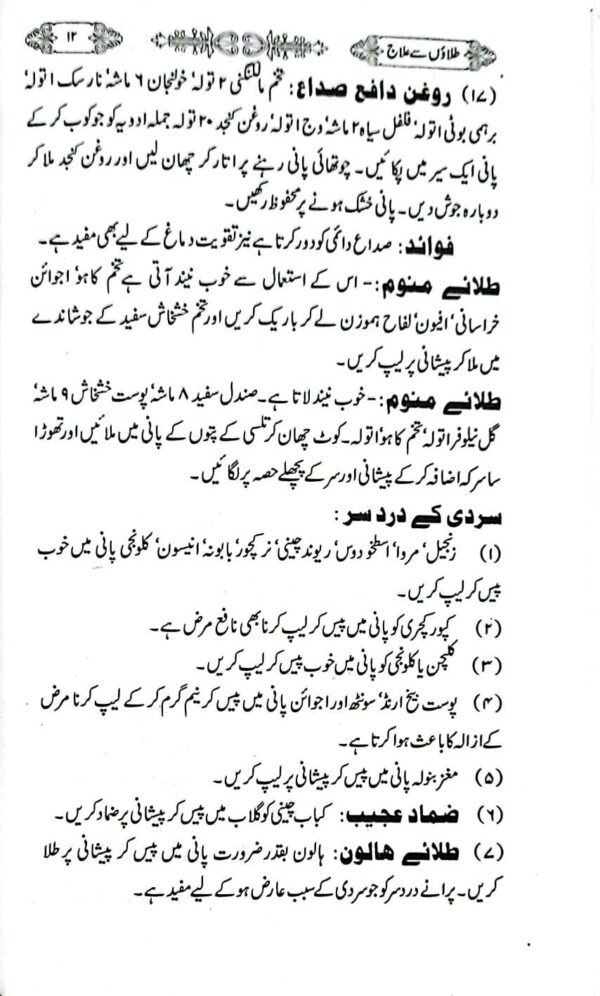 طلاؤں سے علاج
۱۲
(۱۷) روغن دافع صداع: تخم مالکنگنی ۲ تولہ' خولنجان ۶ ماشہ' نارسک ا تولہ'
برہمی بوٹی ا تولہ' فلفل سیاہ ۲ ماشہ' وج ا تولہ' روغن کنجد ۲۰ تولہ جملہ ادویہ کو جوکوب کر کے
پانی ایک سیر میں پکائیں۔ چوتھائی پانی رہنے پر اتار کر چھان لیں اور روغن کنجد ملا کر
دوبارہ جوش دیں۔ پانی خشک ہونے پر محفوظ رکھیں۔
فوائد: صداع دائمی کو دور کرتا ہے نیز تقویت دماغ کے لیے بھی مفید ہے۔
طلائے منوم:- اس کے استعمال سے خوب نیند آتی ہے تخم کاہو' اجوائن
خراسانی' افیون' لفاح ہموزن لے کر باریک کریں اور تخم خشخاش سفید کے جوشاندے
میں ملا کر پیشانی پر لیپ کریں۔
طلائے منوم:- خوب نیند لاتا ہے۔ صندل سفید ۸ ماشہ' پوست خشخاش ۹ ماشہ'
گل نیلوفر ا تولہ' تخم کاہو ا تولہ۔ کوٹ چھان کر تلسی کے پتوں کے پانی میں ملائیں اور تھوڑا
سا سرکہ اضافہ کر کے پیشانی اور سر کے پچھلے حصہ پر لگائیں۔
سردی کے درد سر:
(۱) زنجبیل' مروا' اسطخودوس' ریوند چینی' نرکچور' بابونہ' انیسون' کلونجی پانی میں خوب
پیس کر لیپ کریں۔
(۲) کپور کچری کو پانی میں پیس کر لیپ کرنا بھی نافع مرض ہے۔
(۳) کلیجن یا کلونجی کو پانی میں خوب پیس کر لیپ کریں۔
(۴) پوست بیخ ارنڈ' سونٹھ اور اجوائن پانی میں پیس کر نیم گرم کر کے لیپ کرنا مرض
کے ازالہ کا باعث ہوا کرتا ہے۔
(۵) مغز بنولہ پانی میں پیس کر پیشانی پر لیپ کریں۔
(۶) ضماد عجیب: کباب چینی کو گلاب میں پیس کر پیشانی پر ضماد کریں۔
(۷) طلائے ھالون: ہالون بقدر ضرورت پانی میں پیس کر پیشانی پر طلا
کریں۔ پرانے درد سر کو جو سردی کے سبب عارض ہو کے لیے مفید ہے۔